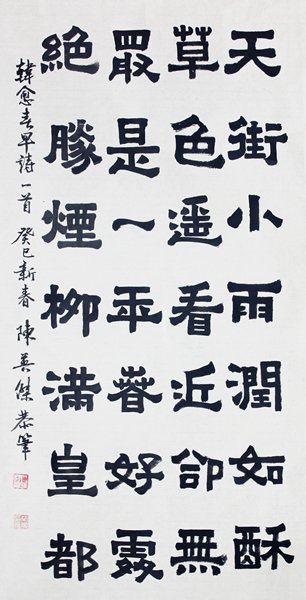 天街小雨潤如酥
草色遥看近卻無
最是一年春好處
絕勝煙柳滿皇都
韓愈春早詩一首 癸巳新春 陳英傑恭筆